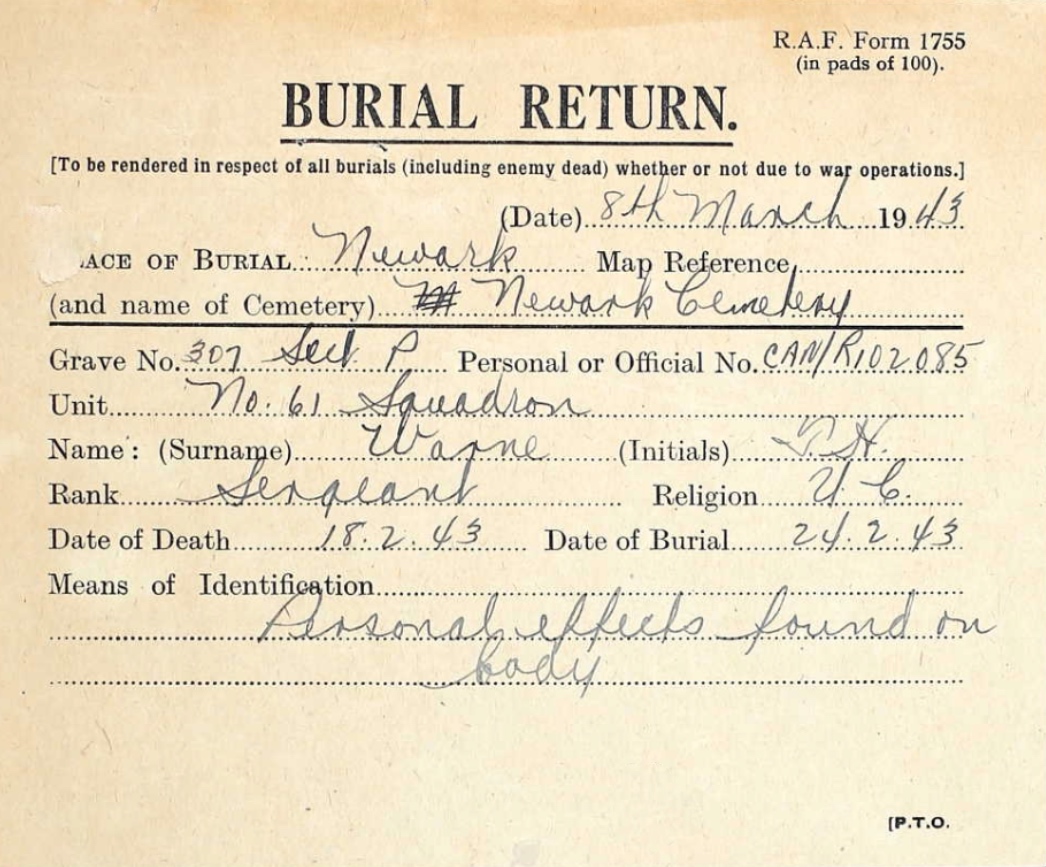 R.A.F. Form 1755
(in pads of 100).
BURIAL RETURN.
[To be rendered in respect of all burials (including enemy dead) whether or not due to war operations.]
(Date) 8th March 1943
ACE OF BURIAL Newark Map Reference
(and name of Cemetery) Newark Cemetery
Grave No. 307 Sect. P Personal or Official No. CAN/R102085
Unit No. 61 Squadron
Name: (Surname) Warne (Initials) T.H.
Rank Sergeant Religion U.C.
Date of Death 18.2.43 Date of Burial 24.2.43
Means of Identification
Personal effects found on
body
[P.T.O.